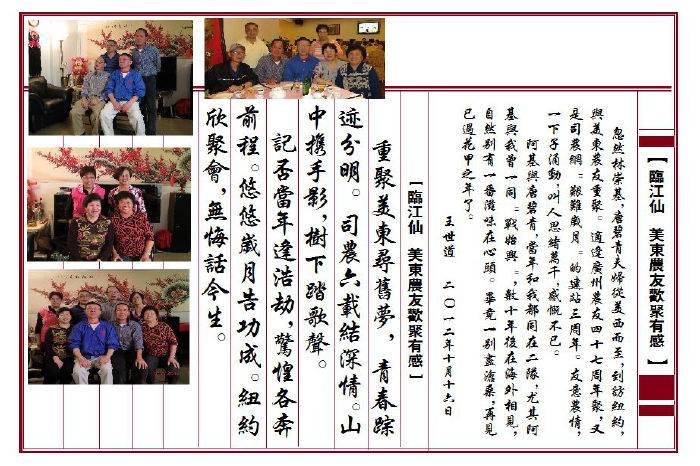 【臨江仙　美東農友歡聚有感】
忽然林崇基,唐碧青夫婦從美西而至,到訪紐約,
與美東農友重聚。適逢廣州農友四十七周年聚,又
是司農網“艱難歲月”的建站三周年。友意農情,
一下子涌動,叫人思緒萬千,感慨不已。
阿基與唐碧青,當年和我都同在二隊,尤其阿
基與我曾一同“戰始興”,數十年後在海外相見,
自然别有一番滋味在心頭。畢竟一别盡滄桑,再見
已過花甲之年了。
王世道　二〇一二年十月十六日
【臨江仙　美東農友歡聚有感】
重聚美東尋舊夢,青春踪
迹分明。司農六載結深情。山
中携手影,樹下踏歌聲。
記否當年逢浩劫,驚惶各奔
前程。悠悠歲月告功成。紐約
欣聚會,無悔話今生。